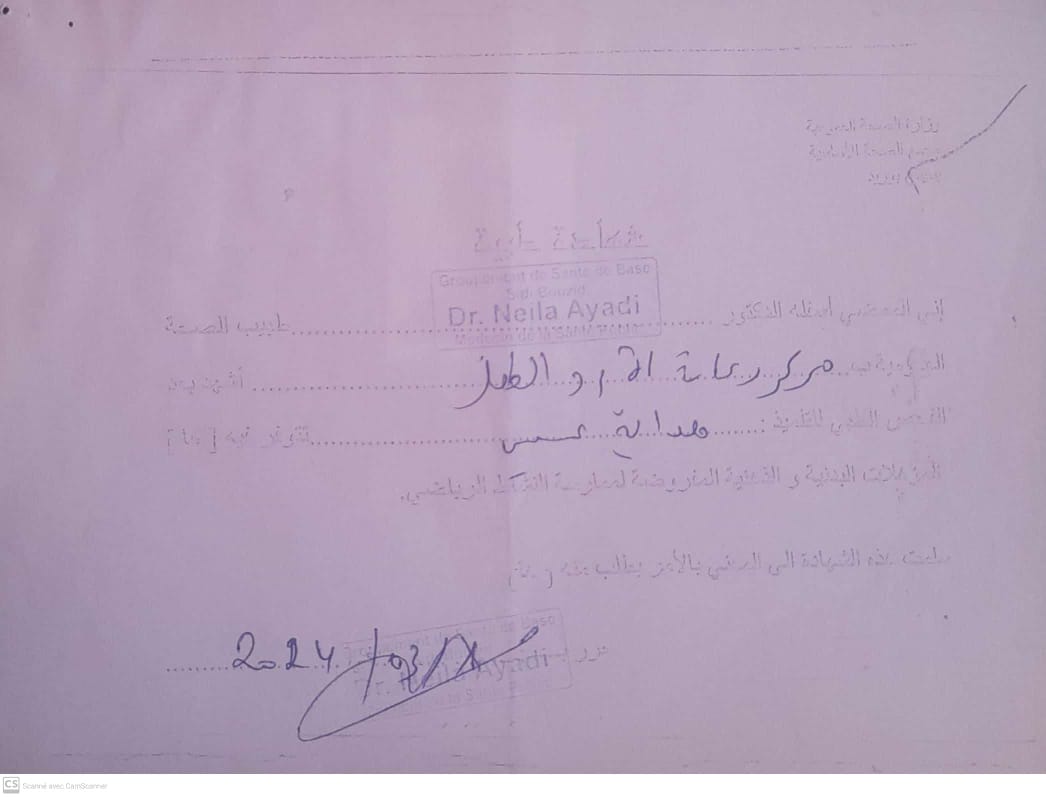 وزارة الصحة العمومية
مجمع الصحة الأساسية
بسيدي بوزيد
شهادة طبية
Groupement de Santé de Base
Sidi Bouzid
Dr. Neila Ayadi
Médecin de la Santé Publique
إني الممضي أسفله الدكتور .................... طبيب الصحة
العمومية بـ مركز رعاية الأم و الطفل .................... أشهد بعد
الفحص الطبي للتلميذ : هداية .................... تتوفر فيه [ ها ]
المؤهلات البدنية و الذهنية المفروضة لممارسة النشاط الرياضي.
سلمت هذه الشهادة الى المعني بالأمر بطلب منه ( ها)
حرر
2024
Groupement de Santé de Base
Dr. Neila Ayadi
Médecin de la Santé Publique
CS Scanné avec CamScanner